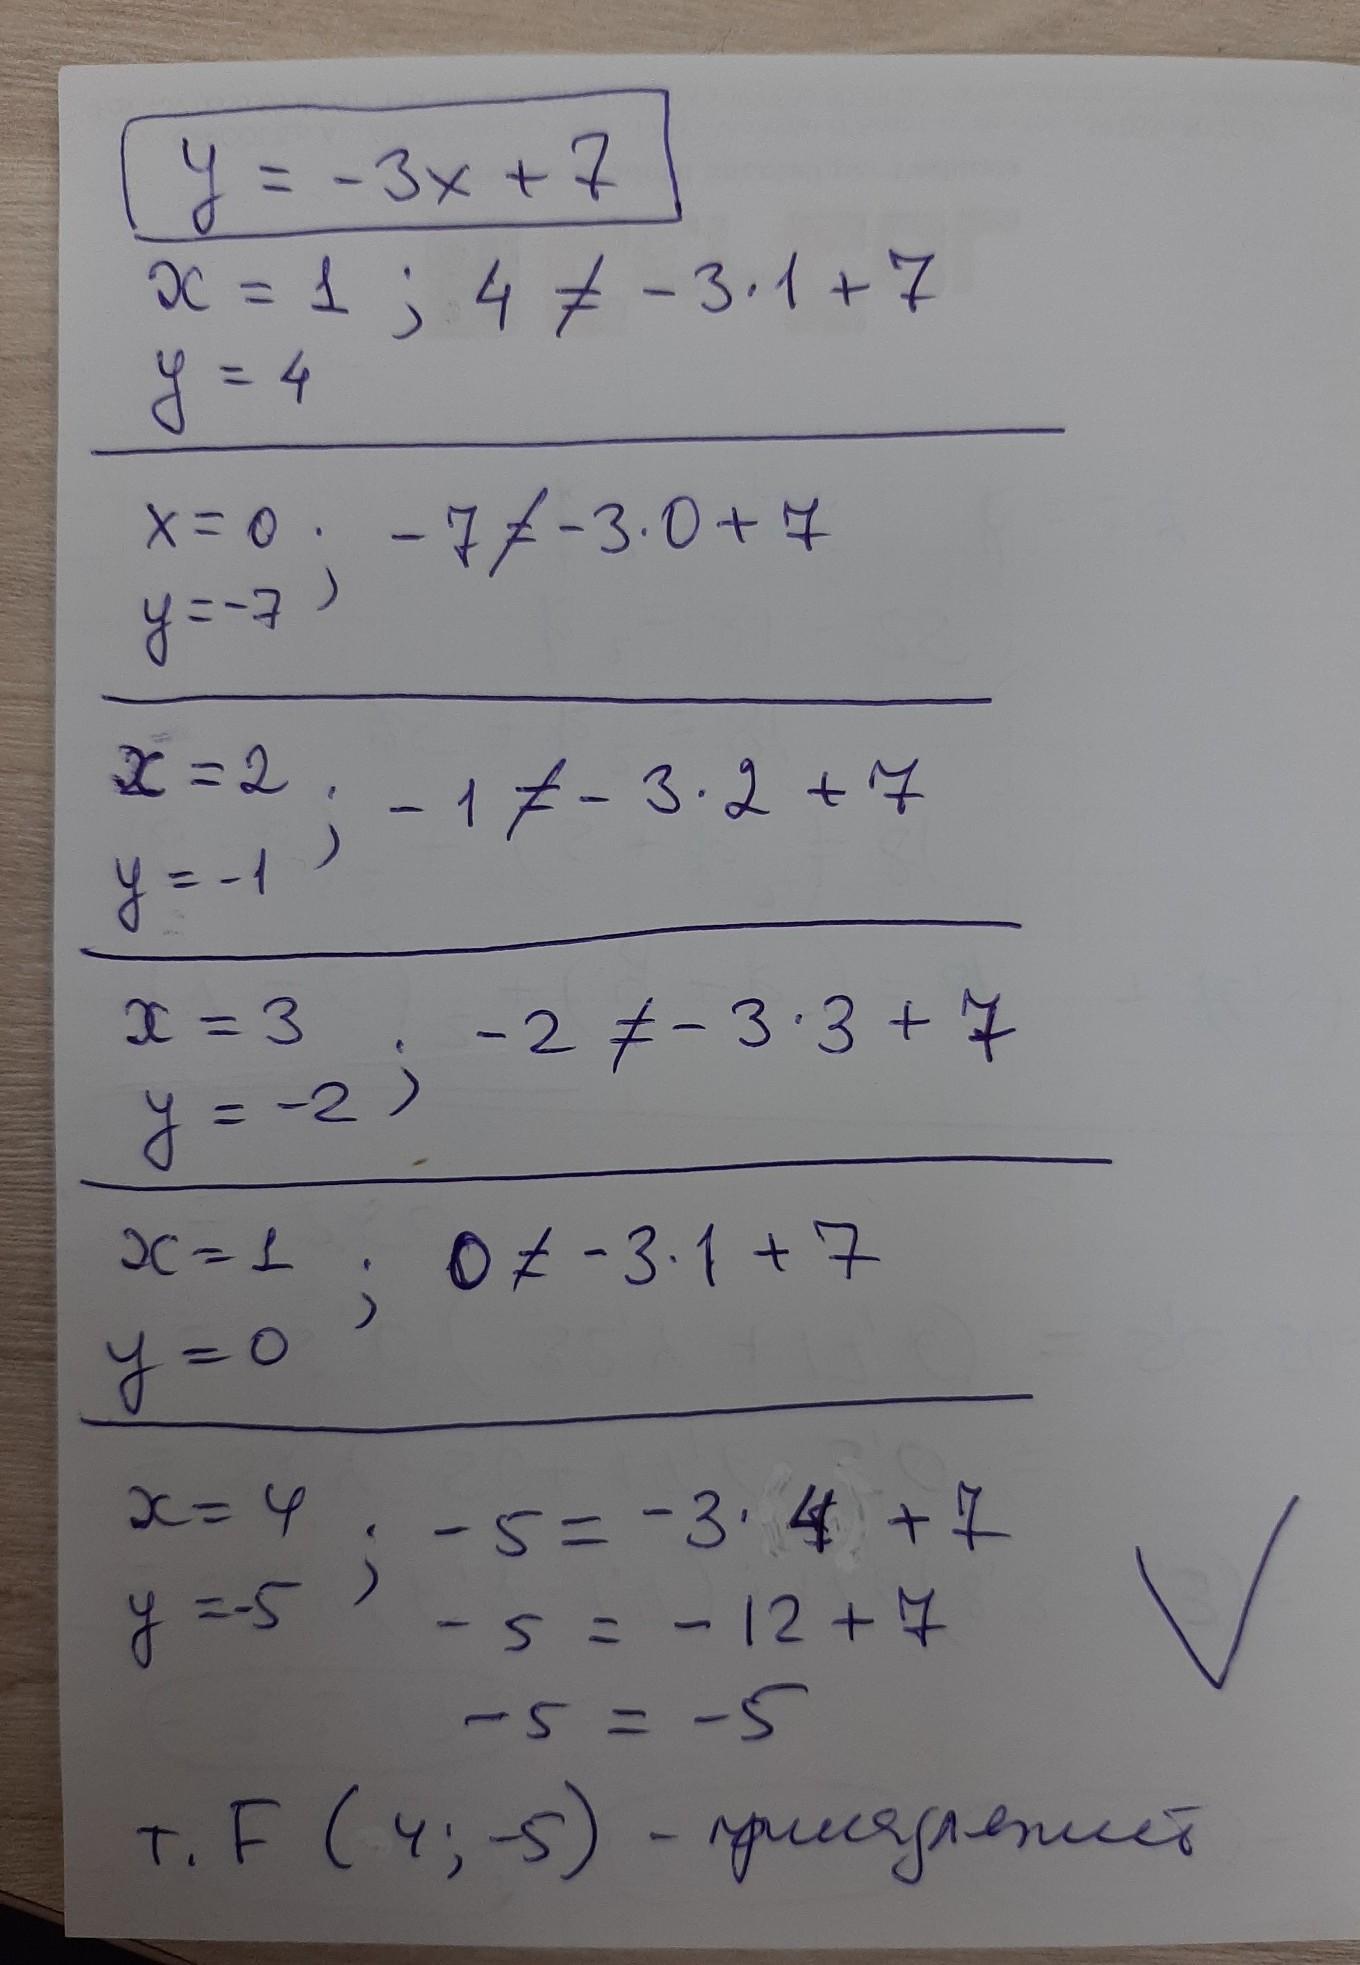 y = -3x + 7
x = 1 ; 4 ≠ -3·1 + 7
y = 4
x = 0 ; -7 ≠ -3·0 + 7
y = -7
x = 2 ; -1 ≠ -3·2 + 7
y = -1
x = 3 ; -2 ≠ -3·3 + 7
y = -2
x = 1 ; 0 ≠ -3·1 + 7
y = 0
x = 4 ; -5 = -3·4 + 7
y = -5
-5 = -12 + 7
-5 = -5
т. F (4; -5) - принадлежит